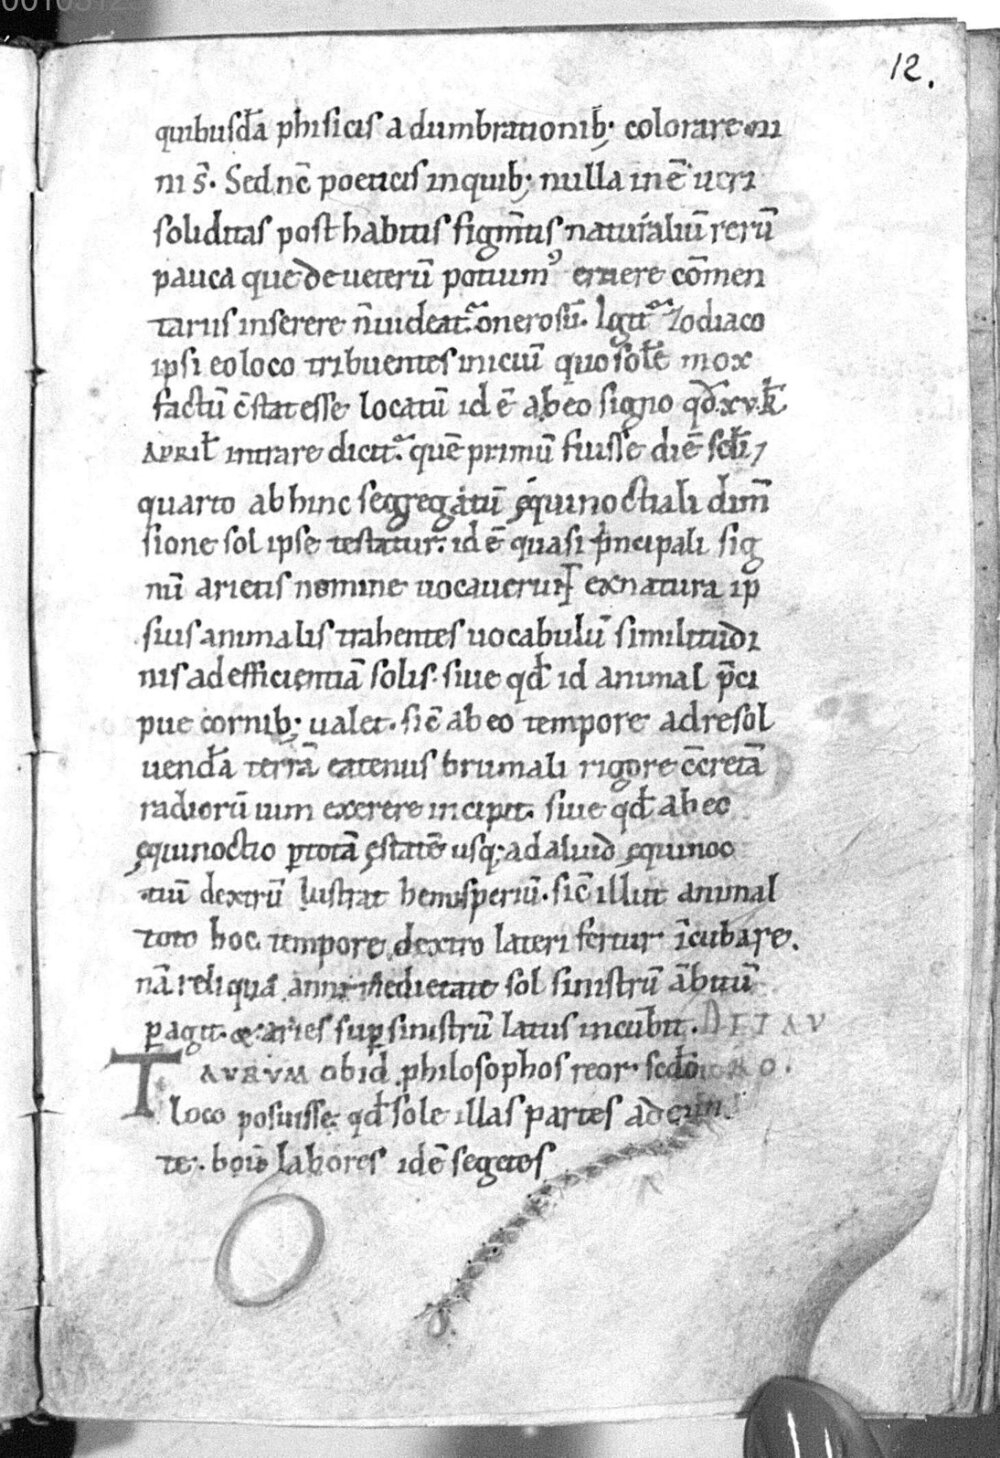 12.
quibusdā phisicis adumbrationib; colorare ni
ni s̄. Sed nē poeticis inquib; nulla inē ueri
soliditas posthabitis figm̄tis naturaliū rerū
pauca que de ueterū potuimꝰ eruere cōmen
tariis inserere n̄ uideat᷑ onerosū. Igit᷑ Zodiaco
ipsi eo loco tribuentes iniciū quo solē mox
factū c̄stat esse locatū id ē abeo signo qđ xv. k̄
APRIL̄ intrare dicit᷑ quē primū fuisse diē scł̄i ⁊
quarto abhinc segregatū ęquinoctiali diuī
sione sol ipse testatur. id ē quasi p̄ncipali sig
nū arietis nomine uocauerunt ex natura ip
sius animalis trahentes uocabulū similitudi
nis ad efficientiā solis. siue qđ id animal p̄ci
pue cornib; ualet. sic̄ ab eo tempore ad resol
uendā terrā eatenus brumali rigore c̄cretā
radiorū uim exerere incipit. siue qđ ab eo
ęquinoctio ꝑ totā ęstatē usq; ad aliud ęquinoc
tiū dextrū lustrat hemisperiū. sic̄ illut animal
toto hoc tempore dextro lateri fertur īcubare.
nā reliqua anni medietate sol sinistrū ābitū
ꝑagit. & aries suꝑ sinistrū latus incubit. DE TAV
TAVRUM ob id philosophos reor. scđo RO.
loco posuisse. qđ sole illas partes adeun
te. boū labores id ē segetes